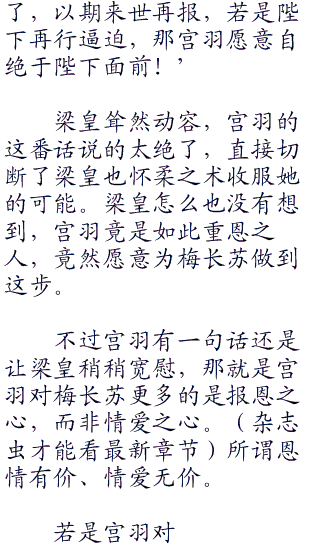 了，以期来世再报，若是陛
下再行逼迫，那宫羽愿意自
绝于陛下面前！’
梁皇耸然动容，宫羽的
这番话说的太绝了，直接切
断了梁皇也怀柔之术收服她
的可能。梁皇怎么也没有想
到，宫羽竟是如此重恩之
人，竟然愿意为梅长苏做到
这步。
不过宫羽有一句话还是
让梁皇稍稍宽慰，那就是宫
羽对梅长苏更多的是报恩之
心，而非情爱之心。（杂志
虫才能看最新章节）所谓恩
情有价、情爱无价。
若是宫羽对